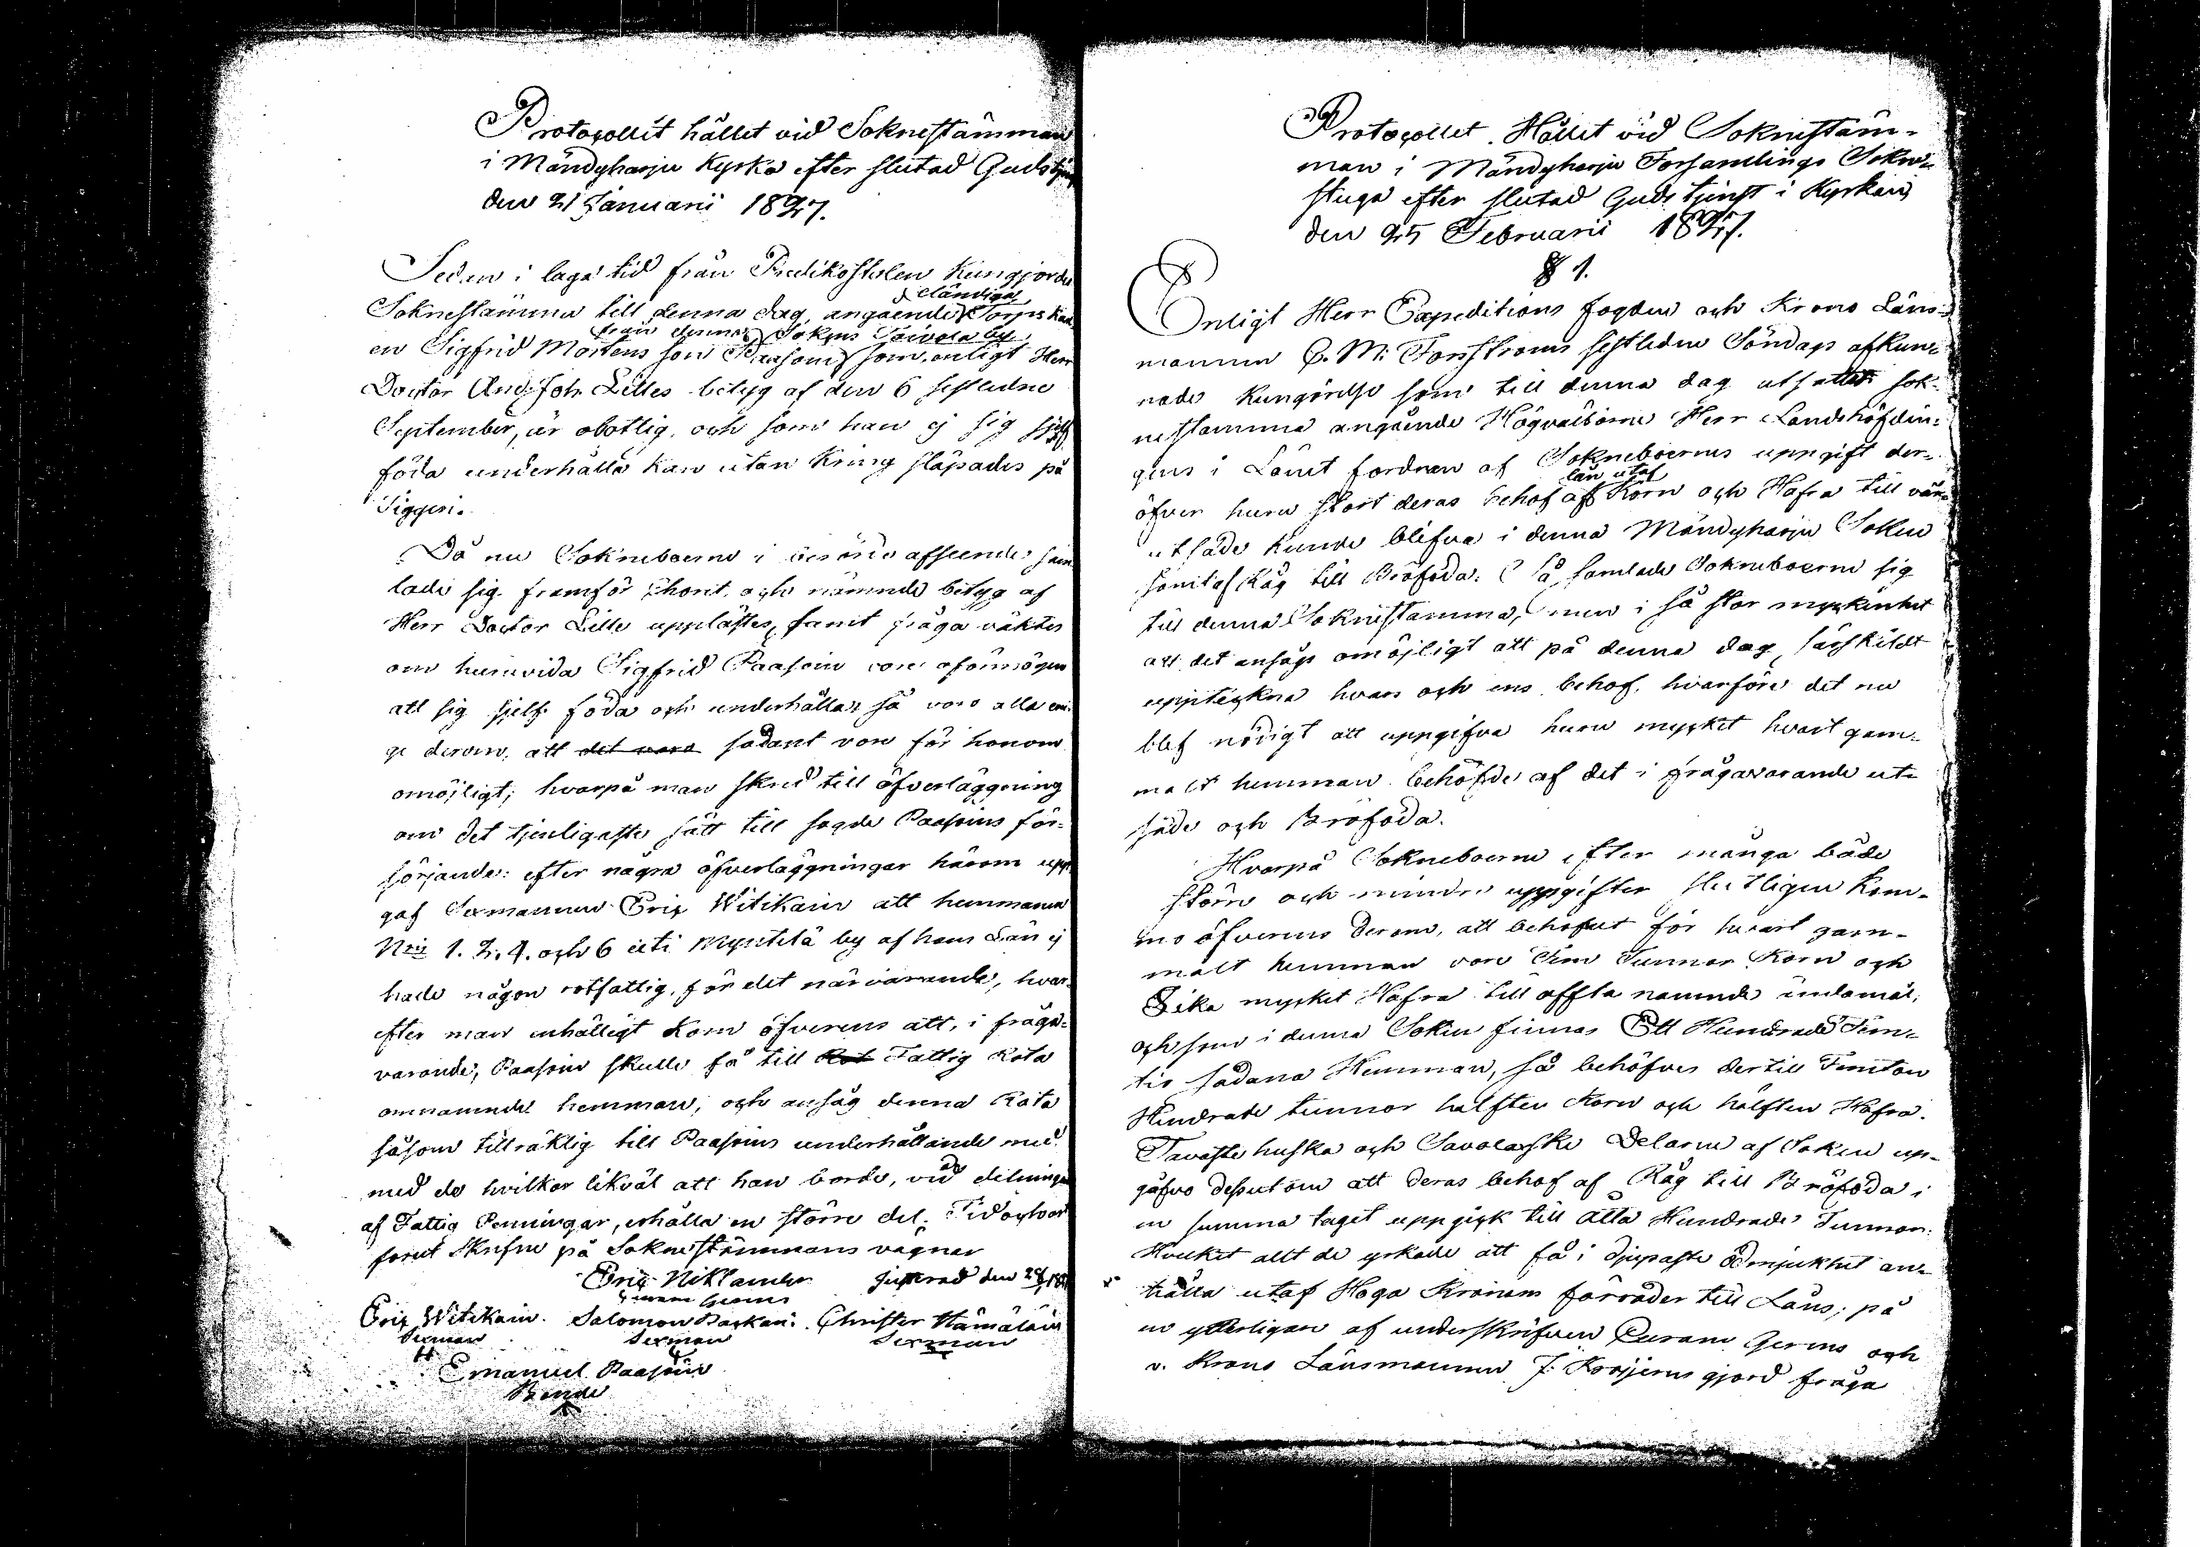 Protocollet hållet vid Soknestämman
i Mändyharju Kyrka efter slutad Gudstjen
den 21 Januarii 1827.
Sedan i laga tid från Predikostolen kungjordes
Soknestämma till denna dag, angående eländiga Torpskarl
en Sigfrid Mårtens son Paasoin från denna Sokns Toivola by som, enligt Herr
Doctor And: Joh. Lilles betyg af den 6 sistledne
September, är obotlig, och som han ej sig sjelf
föda underhålla kan utan kring släpades på
Tiggeri.
Då nu Sokneboerne i berörde afseende sam
lade sig framför Choret, och nämnde betyg af
Herr Doctor Lille upplästes, samt fråga väktes
om huruvida Sigfrid Paasoin vore oförmögen
att sig sjelf föda och underhålla; så voro alla eni
ge derom, att det vore sådant vore för honom
omöjligt; hvarpå man skred till öfverläggning
om det tjenligaste sätt till sagde Paasoins för-
sörjande: efter några öfverläggningar härom upp
gaf Sexmannen Eric Witikain att hemmanen
Nris 1. 2. 4. och 6 uti Myntilä by af hans Län ej
hade någon rotfattig, för det närvarande, hvar-
efter man enhälligt kom öfverens att, i fråga-
varande, Paasoin skulle få till Rot Fattig Rota
omnämnde hemman; och ansåg denna Rota
såsom tillräklig till Paasoins underhållande med
med de vilkor likväl att han borde, vid delningen
af Fattig Penningar, erhålla en större del. Tid och ort
förut skrefne på Soknestämmans vägnar
Eric Niklander Justerad den
Curam Gerens
Eric Witikain. Salomon Paskani. Christer Hämäläin
Sexman Sexman Sexman
Emanuel Paasoin
Bonde
Protocollet Hållet vid Soknestäm-
man i Mändyharju Forsamlings Sokne-
stuga efter slutad Gudstjenst i Kyrkan,
den 25 Februarii 1827.
§ 1.
Enligt Herr Expeditions fogden och Krono Läns-
mannen C. M. Forsstroms sistleden Söndags afkun-
nade kungörelse som till denna dag utsattes sok-
nestamma angående Högvälborne Herr Landshöfdin-
gens i Länet fordran af Sokneboernes uppgift der-
öfver huru stort deras behof af lån utaf Korn och Hafra till vår-
utsäde kunde blifva i denna Mändyharju Soken
samt af Råg till Brödföda: Så samlade Sokneboerne sig
till denna Soknestamma, men i så stor myckenhet
att det ansågs omöjligt att på denna dag, särskildt
uppteckna hvars och ens behof, hvarföre det nu
blef nödigt att uppgifva huru mycket hvart gam-
malt hemman behöfde af det i frågavarande ut-
säde och Brödföda.
Hvarpå Sokneboerne efter många både
större och mindre uppgifter slutligen kom-
mo öfverens derom, att behofvet för hvart gam-
malt hemman vore Fem Tunnor Korn och
Lika mycket Hafra till offta nämnde ändamål,
och som i denna Soken finnas Ett Hundrade Fem-
tio sådana Hemman, så behöfves dertill Femton
Hundrade tunnor halften Korn och hälften Hafra.
Tavastehuska och Savolaxska Delarne af Soken up-
gåfvo dessutom att deras behof af Råg till Brödföda i
en summa taget uppgick till Åtta Hundrade Tunnor.
Hvilket allt de yrkade att få i djupaste ödmjukhet an-
hålla utaf Höga Kronans förråder till Låns; på
en ytterligare af underskrifven Curam Gerens och
v. Krono Länsmannen J. gjord fråga